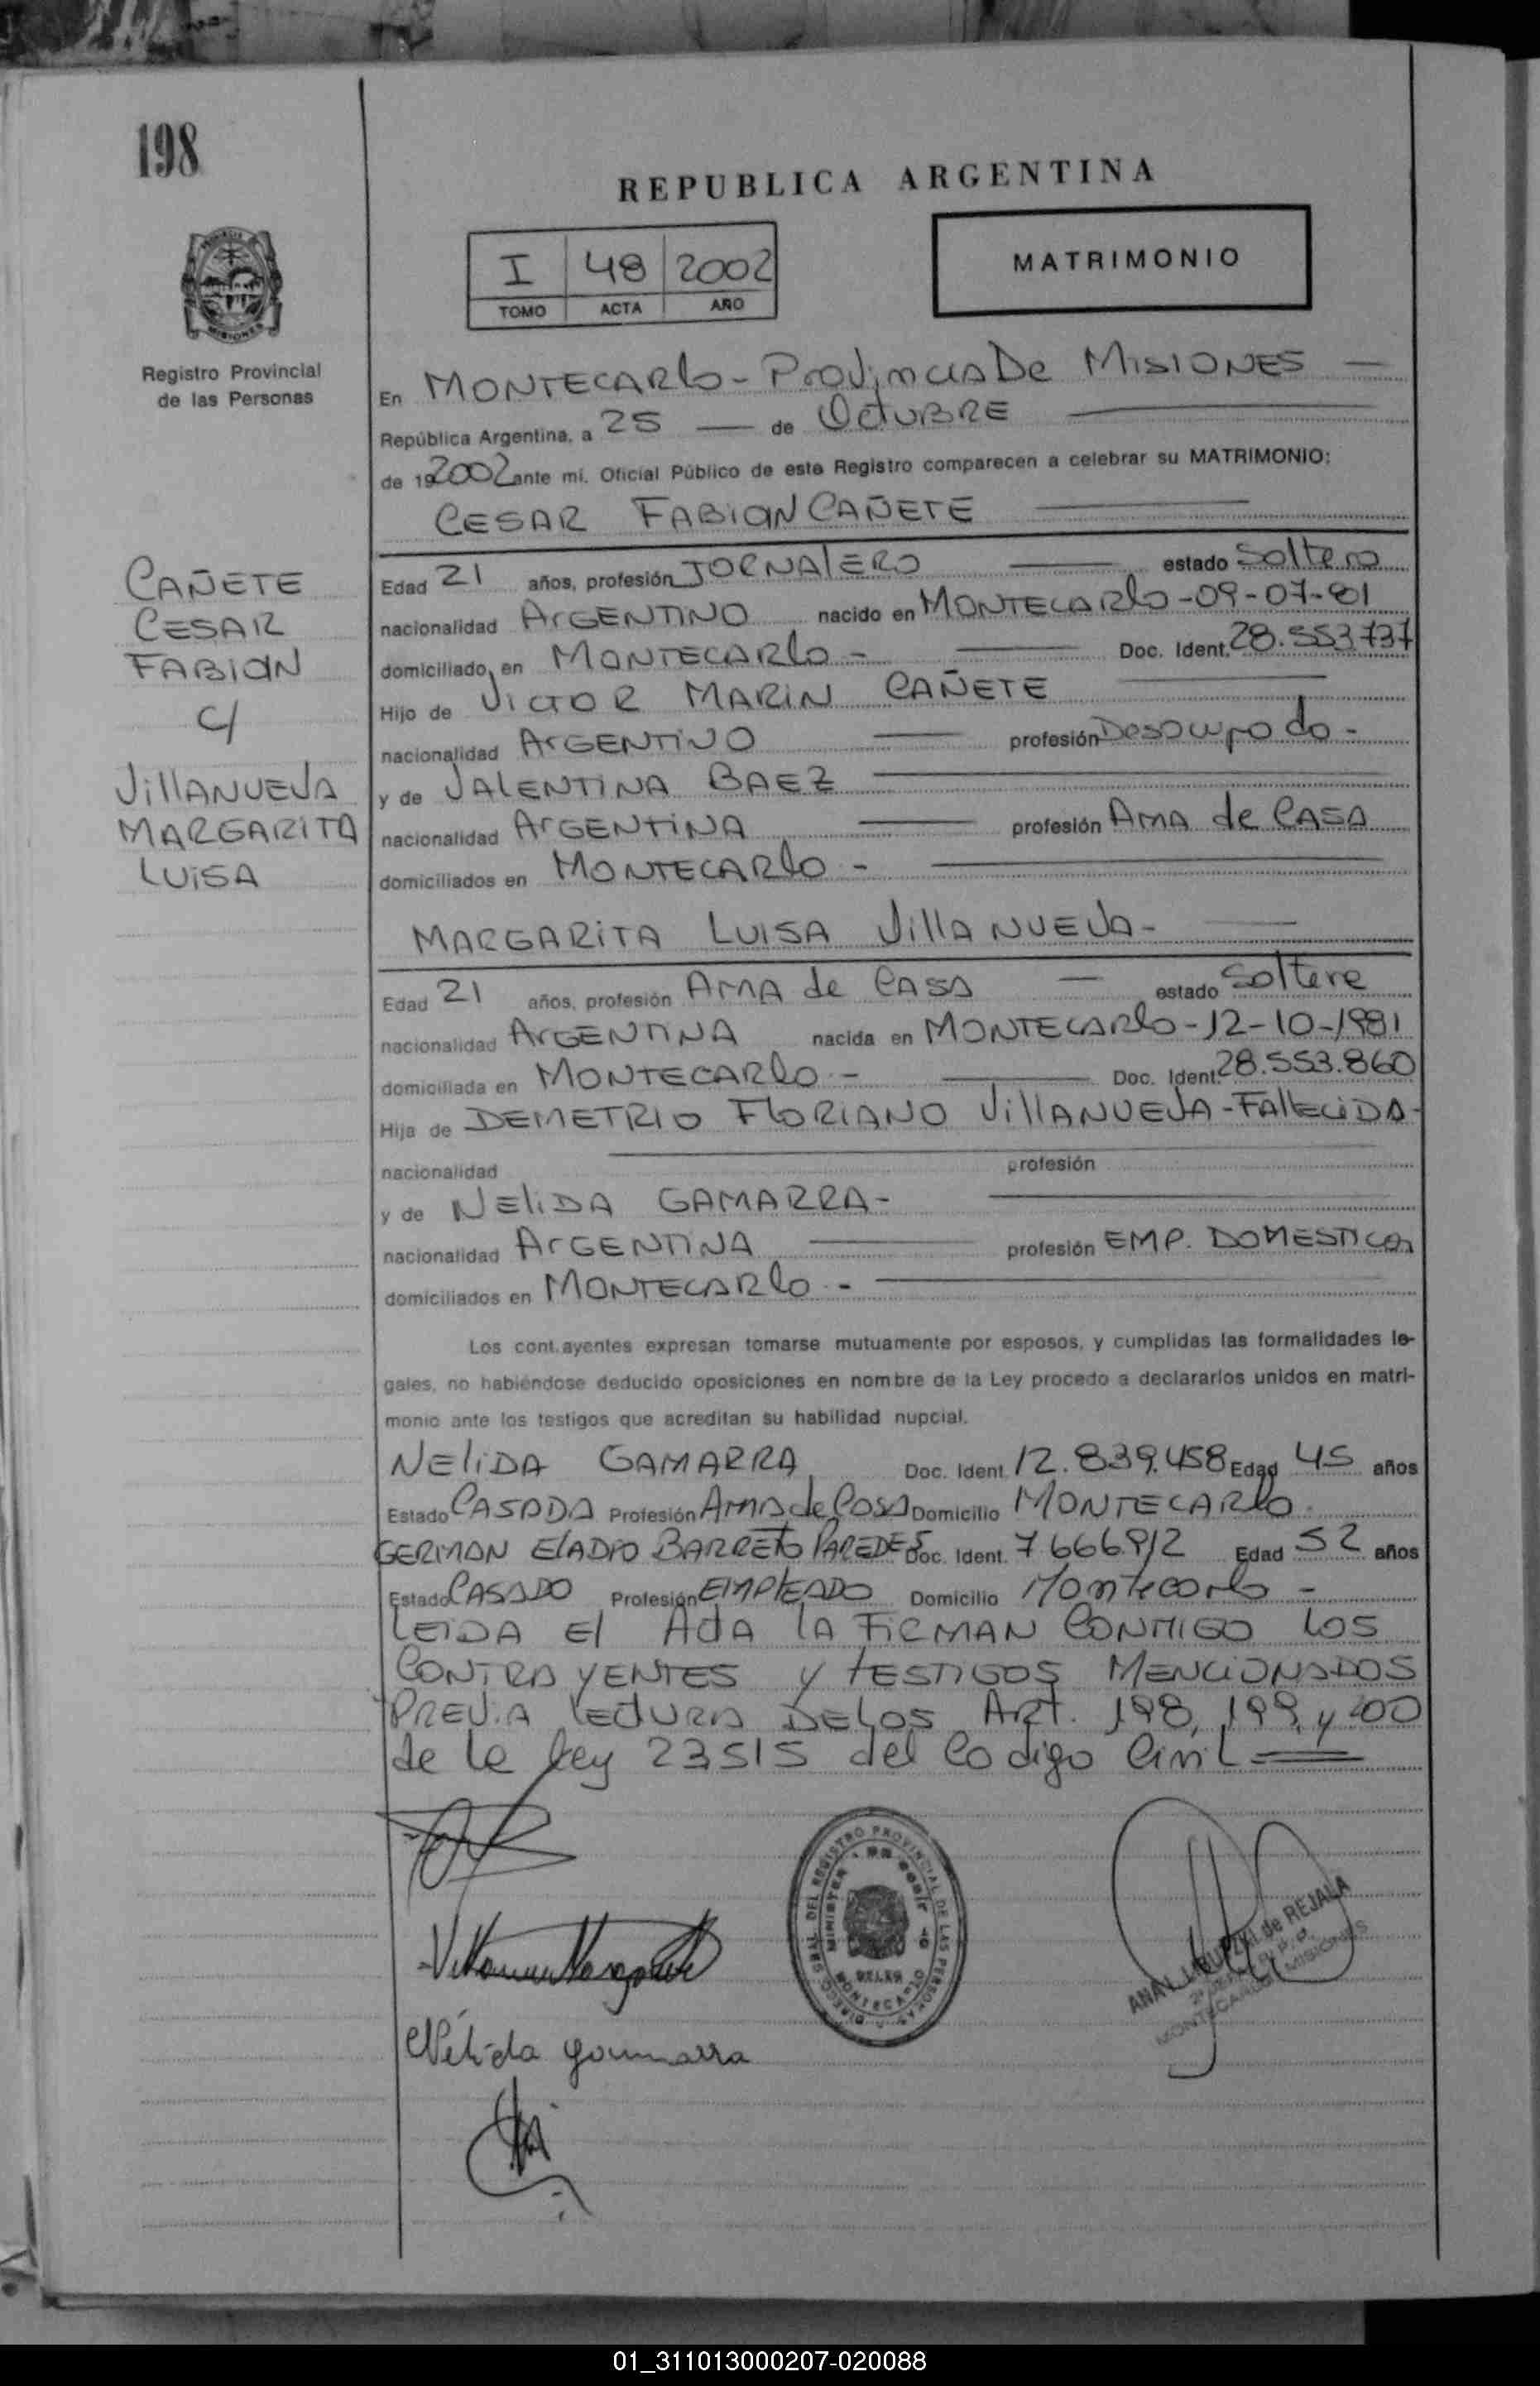 198
REPUBLICA ARGENTINA
I 48 2002
TOMO ACTA AÑO
MATRIMONIO
MISIONES
Registro Provincial
de las Personas
En MONTECARlo - Provincia De MISIONES —
República Argentina, a 25 — de OctuBRE
de 192002 ante mi. Oficial Público de este Registro comparecen a celebrar su MATRIMONIO:
CESAR FABIAN CAÑETE
CAÑETE
CESAR
FABIAN
C/
VillANUEVA
MARGARITA
LUiSA
Edad 21 años, profesión JORNAlERO estado Soltero
nacionalidad ArGENTINO nacido en MONTECARlo-09-07-81
domiciliado en MONTECARlo - Doc. Ident. 28.553.737
Hijo de VICTOR MARIN CAÑETE
nacionalidad ArGENTiNO profesión Desocupado -
y de VALENTINA BAEZ
nacionalidad ArGENTiNA profesión AMA de CASA
domiciliados en MONTECARlo -
MARGARiTA LUISA VillANUEVA-
Edad 21 años, profesión AMA de CASA — estado Soltera
nacionalidad ArGENTINA nacida en MONTECARlo-12-10-1981
domiciliada en MONTECARlo - Doc. Ident. 28.553.860
Hija de DEMETRIO FlORIANO VillANUEVA-FAllECiDA-
nacionalidad profesión
y de NEliDA GAMARRA-
nacionalidad ArGENTINA profesión EMP. DOMESTICA
domiciliados en MONTECARlo -
Los contrayentes expresan tomarse mutuamente por esposos, y cumplidas las formalidades le-
gales, no habiéndose deducido oposiciones en nombre de la Ley procedo a declararlos unidos en matri-
monio ante los testigos que acreditan su habilidad nupcial.
NEliDA GAMARRA Doc. Ident. 12.839.458 Edad 45 años
Estado CASADA Profesión AMA de CASA Domicilio MONTECARlo
GERMAN ElADIO BARRETO PAREDES Doc. Ident. 7666.912 Edad 52 años
Estado CASADO Profesión EMPlEADO Domicilio Montecarlo -
LEIDA El ActA lA FiRMAN CONMIGO los
CONTRAYENTES y tESTIGOS MENCIONADOS
PREVIA lECTURA DE LOS Art. 198, 199, y 200
de la ley 23515 del Codigo Civil
Nélida Gamarra
DIRECC. GRAL. DEL REGISTRO PROVINCIAL DE LAS PERSONAS
de REJALA
MONTECARLO MISIONES
01_311013000207-020088